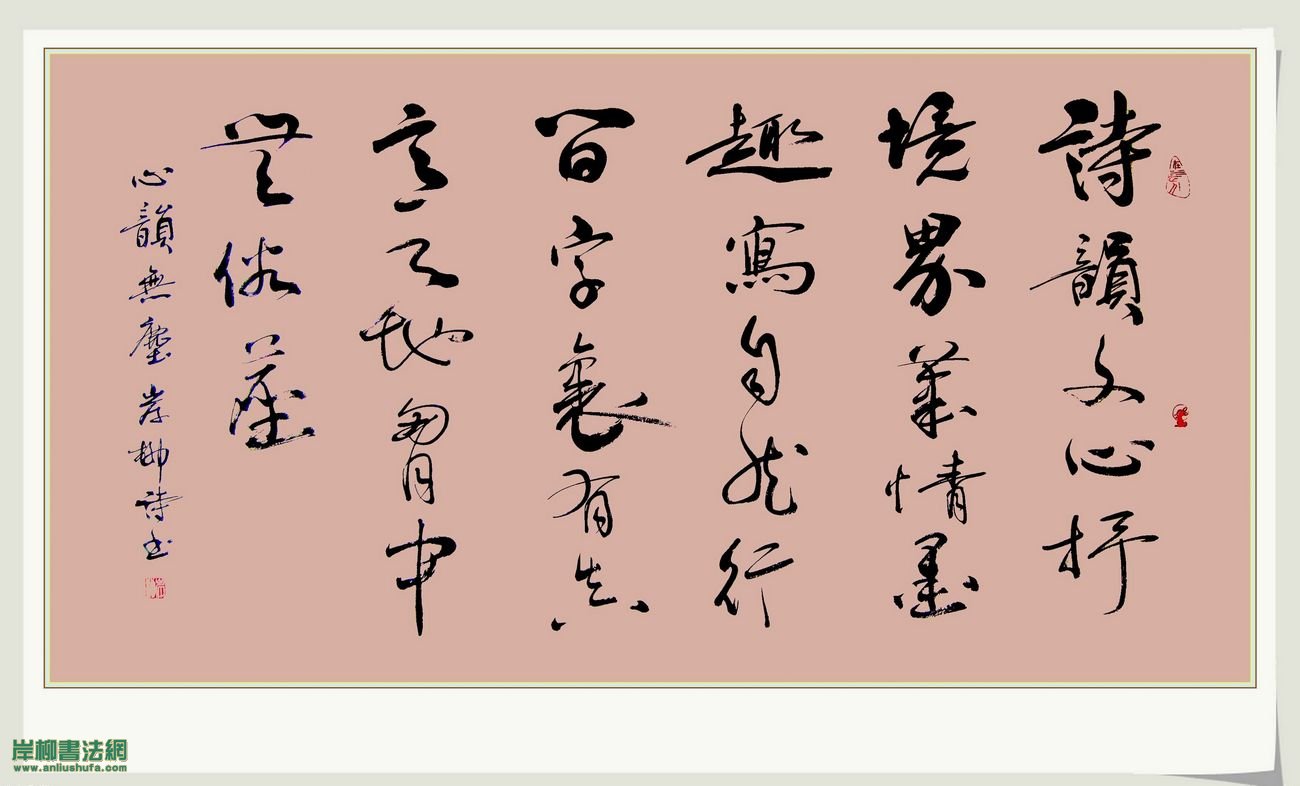 詩韻文心抒
境界筆情墨
趣寫自然行
間字裏有真
意天地胸中
無俗塵
心韻無塵岸柳詩書
岸柳書法網
www.anliushufa.com